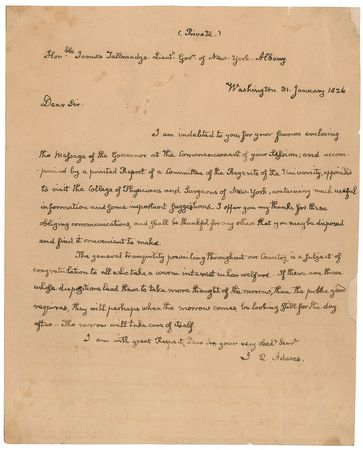 (Private.)
Honble James Tallmadge Lieut. Govr. of New-York. Albany
Washington 31. January 1826
Dear Sir.
I am indebted to you, for your favour enclosing
the Message of the Governor at the Commencement of your Session; and accom-
panied by a printed Report of a Committee of the Regents of the University appointed
to visit the College of Physicians and Surgeons of New-York, containing much useful
information and some important suggestions. I offer you my thanks for these
obliging communications and shall be thankful for any other that you may be disposed
and find it convenient to make.
The general tranquility prevailing throughout our Country is a subject of
congratulation to all who take a warm interest in her welfare. If there are those
whose dispositions lead them to take more thought of the morrow, than the public good
requires, they will perhaps when the morrow comes be looking still for the day
after— The morrow will take care of itself.
I am with great Respect, Dear Sir, your very obedt Servt
J. Q. Adams.